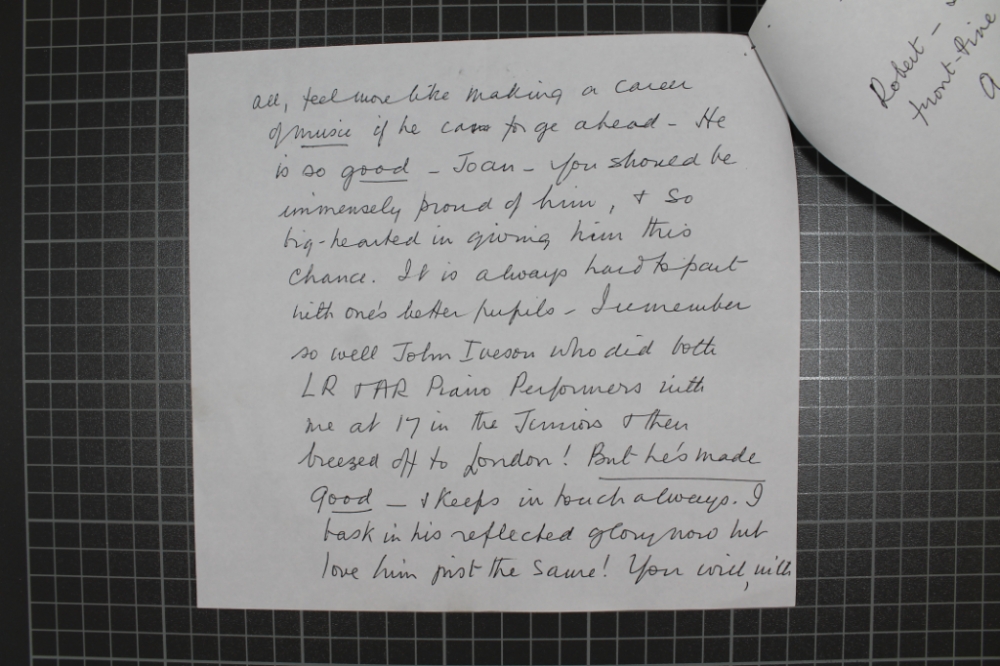 all, feel more like making a career
of music if he can to go ahead - He
is so good - Joan - you should be
immensely proud of him, & so
big-hearted in giving him this
chance. It is always hard to part
with one's better pupils - I remember
so well John Iveson who did both
LR & AR Piano Performers with
me at 17 in the Juniors & then
breezed off to London! But he's made
good - & keeps in touch always. I
bask in his reflected glory now but
love him just the same! You will, with
Robert -
front-line